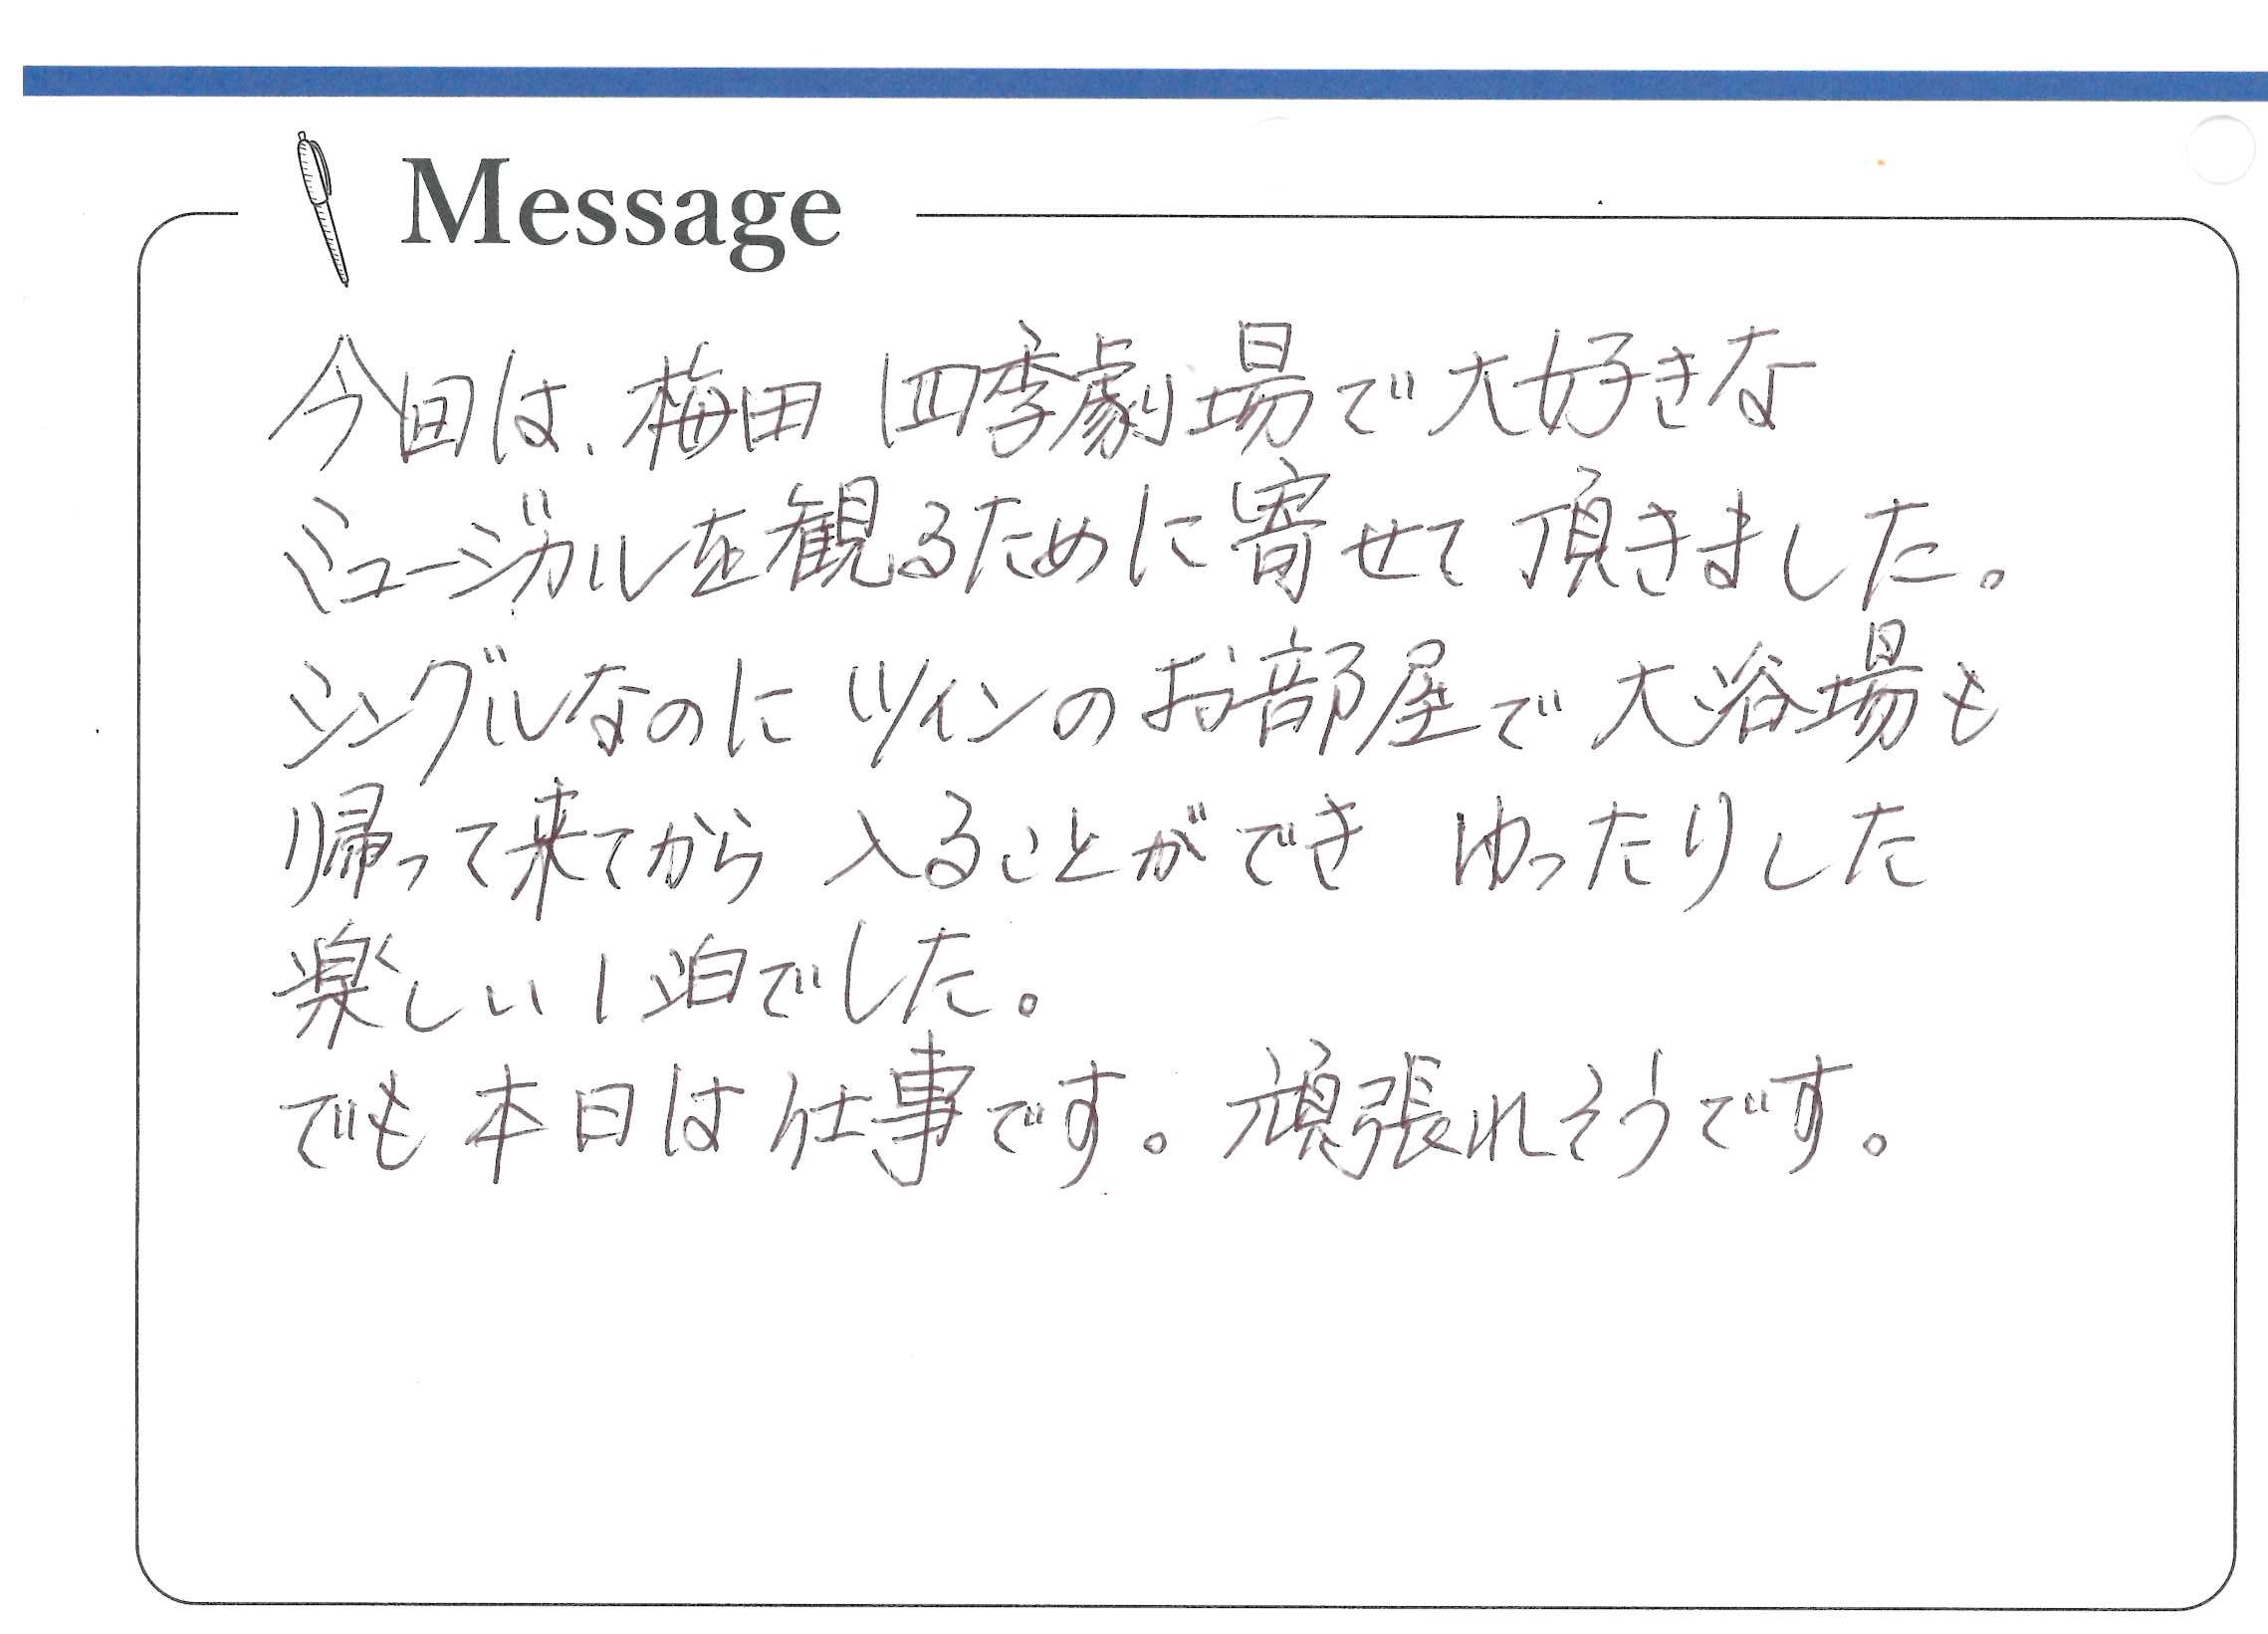 Message
今回は、梅田 四季劇場で大好きな
ミュージカルを観るために寄せて頂きました。
シングルなのに ツインのお部屋で 大浴場も
帰って来てから 入ることができ ゆったりした
楽しい1泊でした。
でも 本日は 仕事です。頑張れそうです。